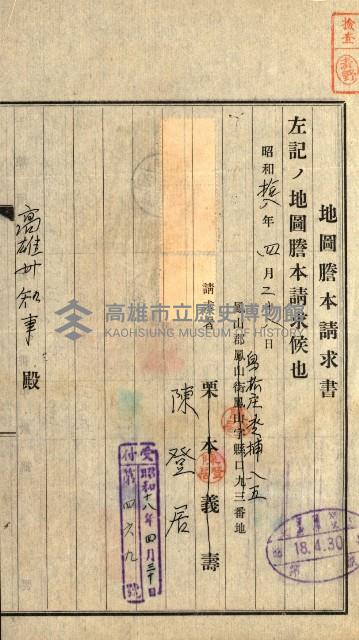 檢査
地圖謄本請求書
左記ノ地圖謄本請求候也
昭和拾八年四月二十八日
鳥松庄
八五
鳳山郡鳳山街鳳山字縣口九三番地
請求者
栗本義壽
陳登居
高雄州知事殿
高雄市立歷史博物館
KAOHSIUNG MUSEUM OF HISTORY
受付
昭和十八年四月三十日
第四六九號
18.4.30